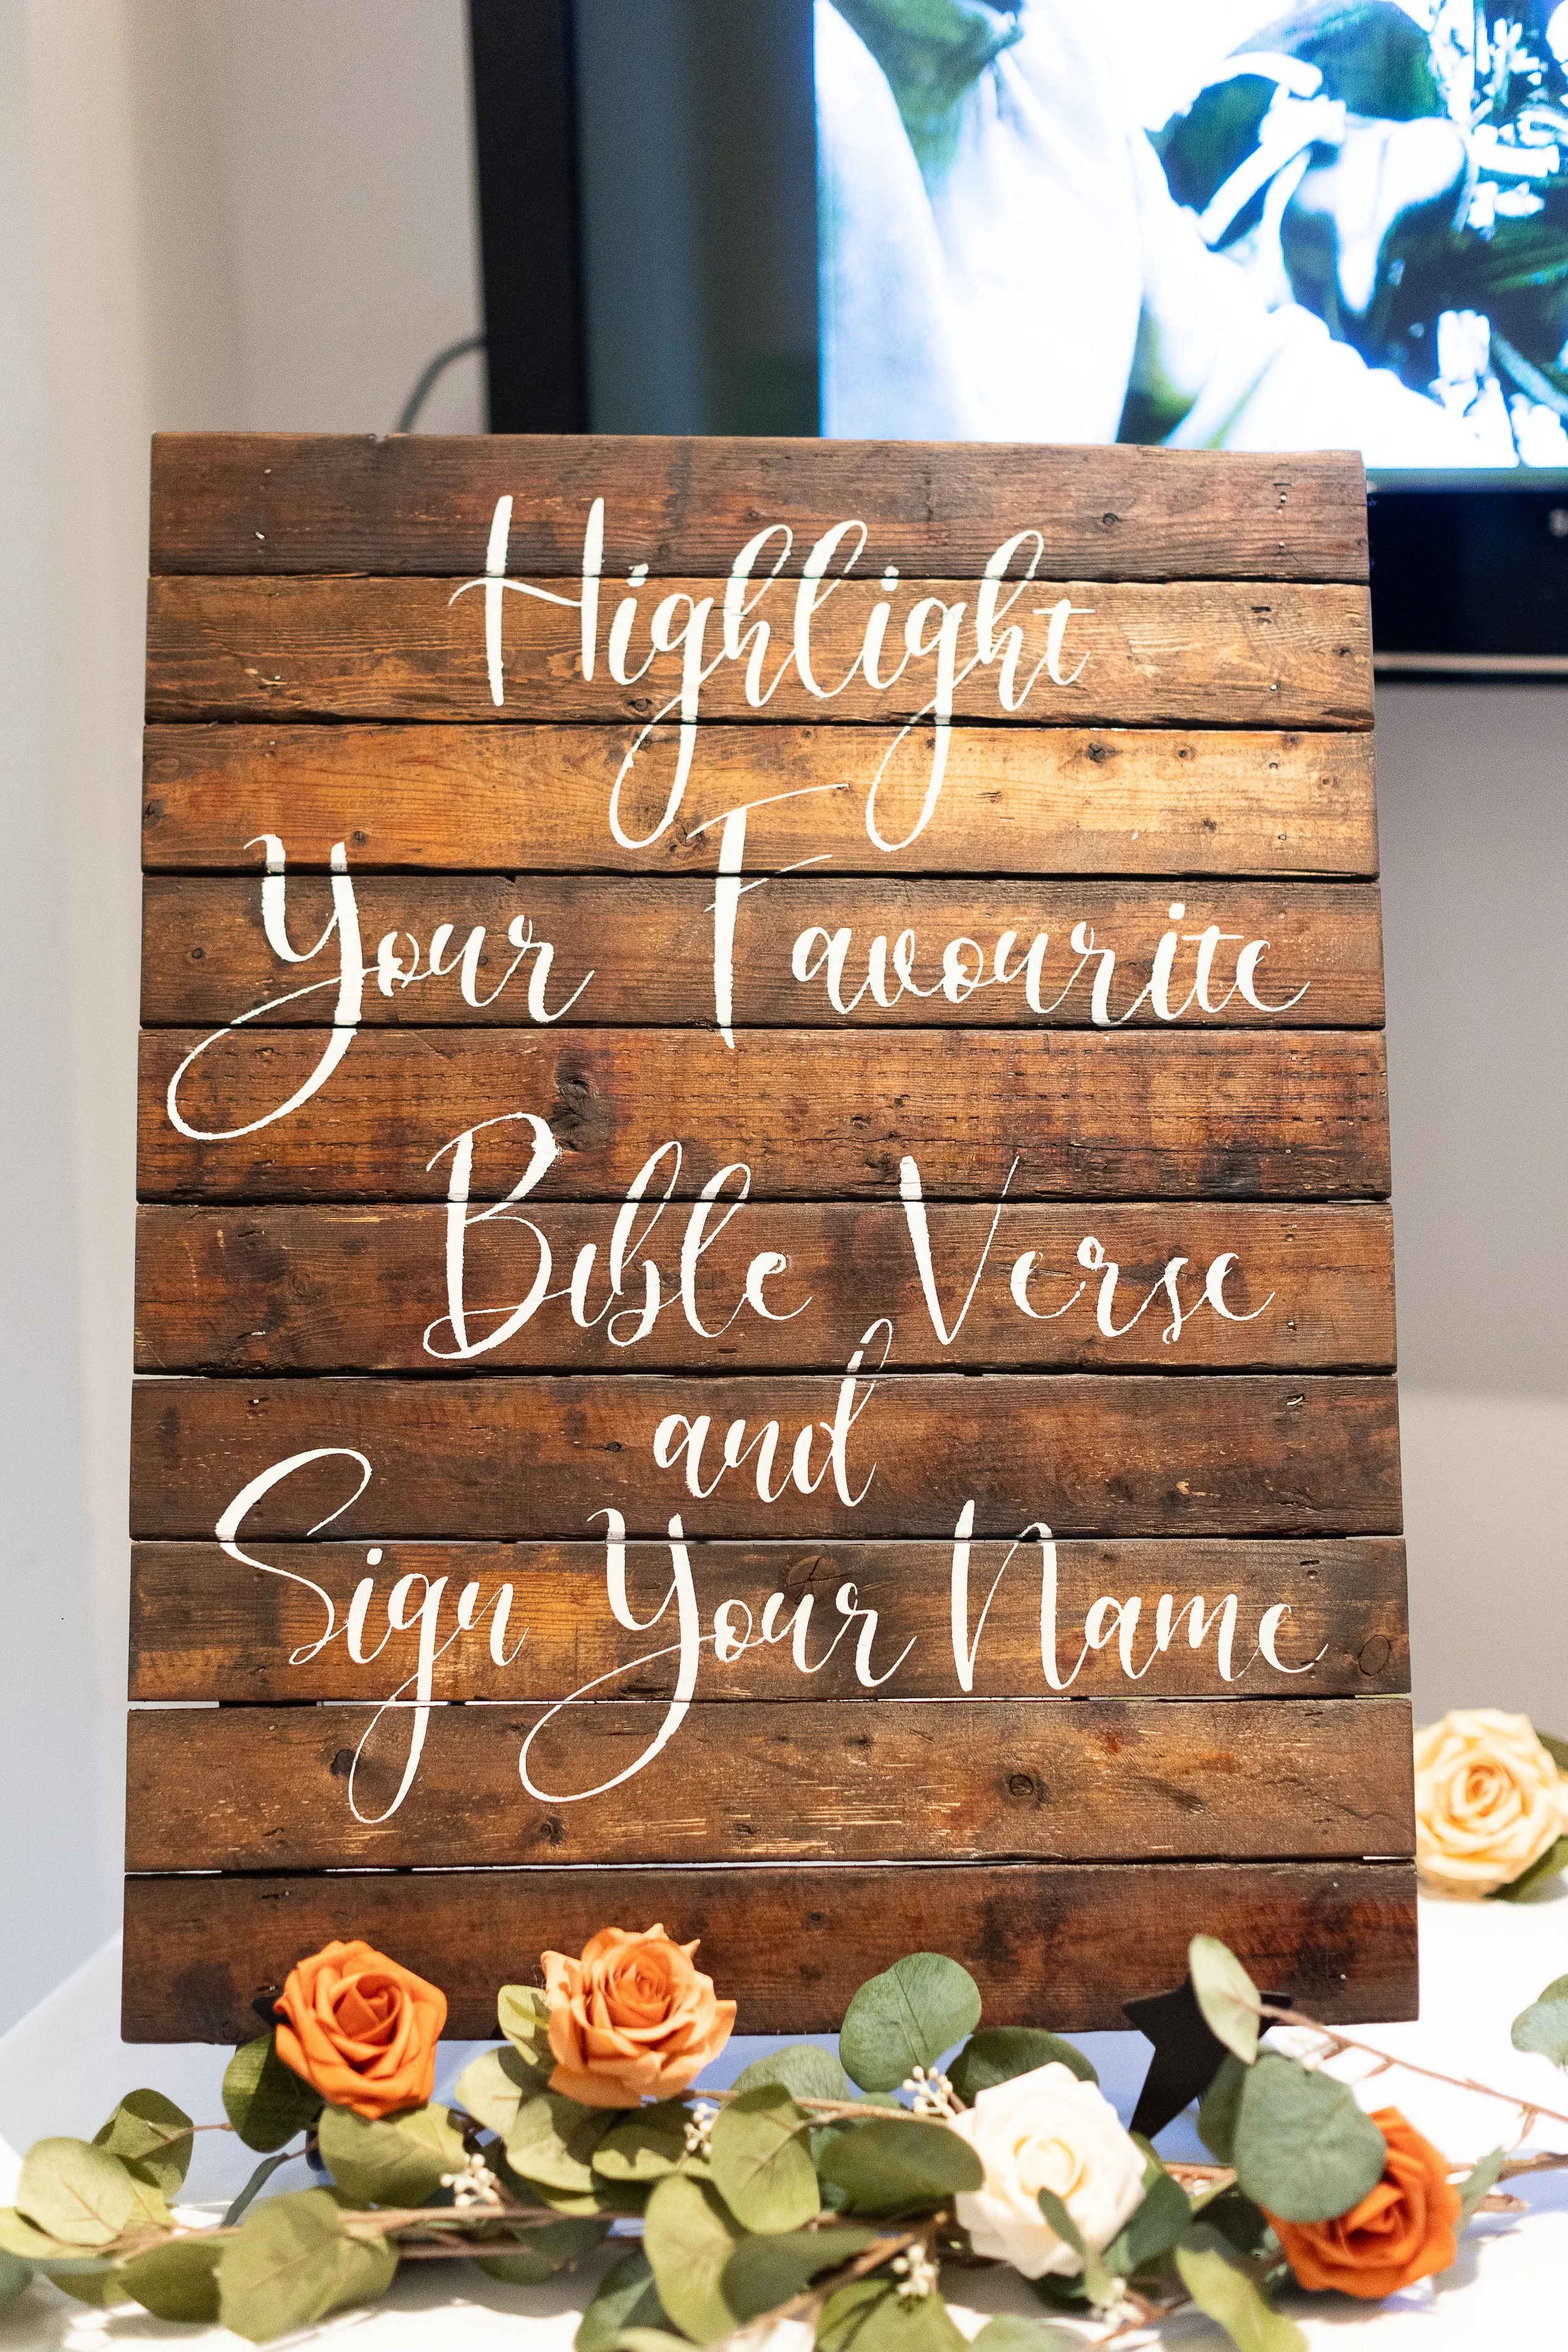 Highlight
Your Favourite
Bible Verse
and
Sign Your Name